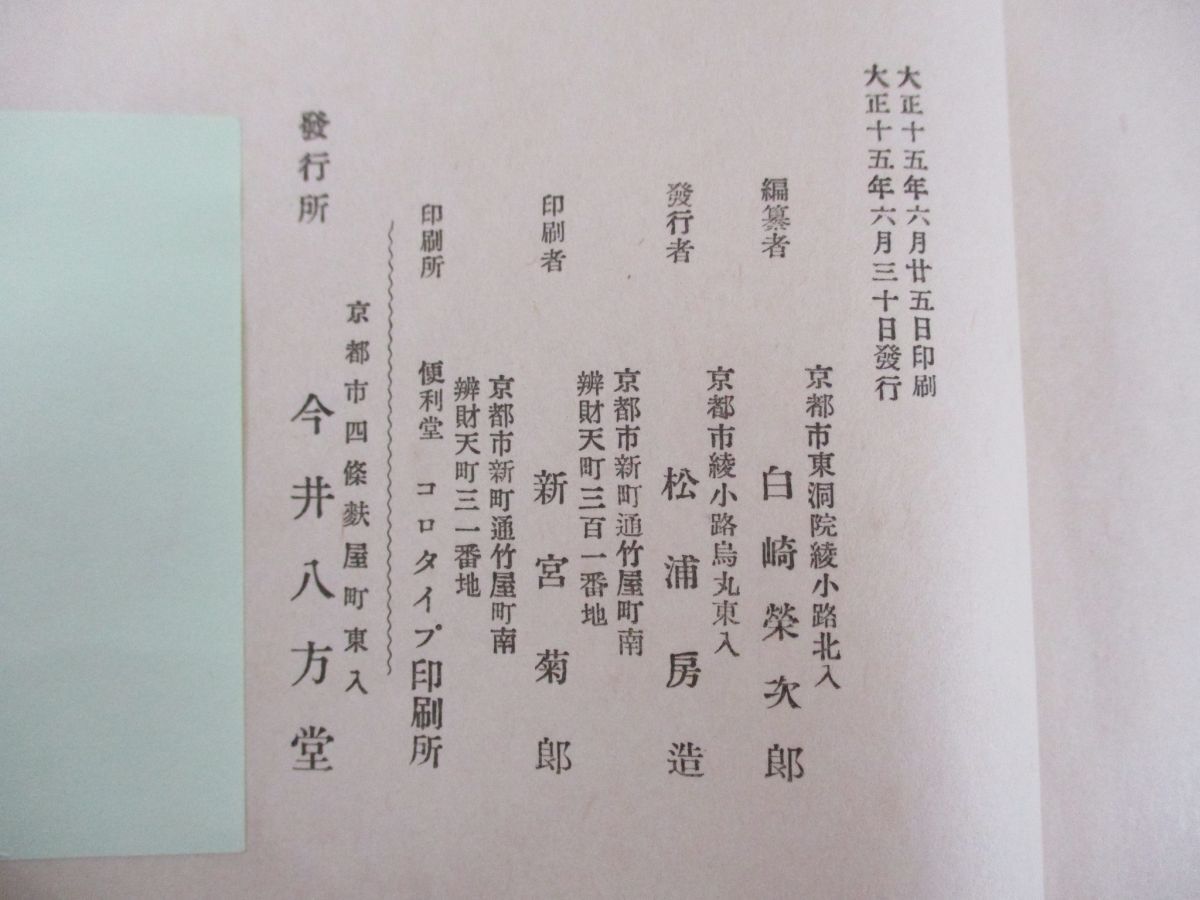 大正十五年六月廿五日印刷
大正十五年六月三十日發行
京都市東洞院綾小路北入
編纂者 白崎榮次郎
京都市綾小路烏丸東入
發行者 松浦房造
京都市新町通竹屋町南
辨財天町三百一番地
印刷者 新宮菊郎
京都市新町通竹屋町南
辨財天町三一番地
印刷所 便利堂 コロタイプ印刷所
京都市四條麩屋町東入
發行所 今井八方堂